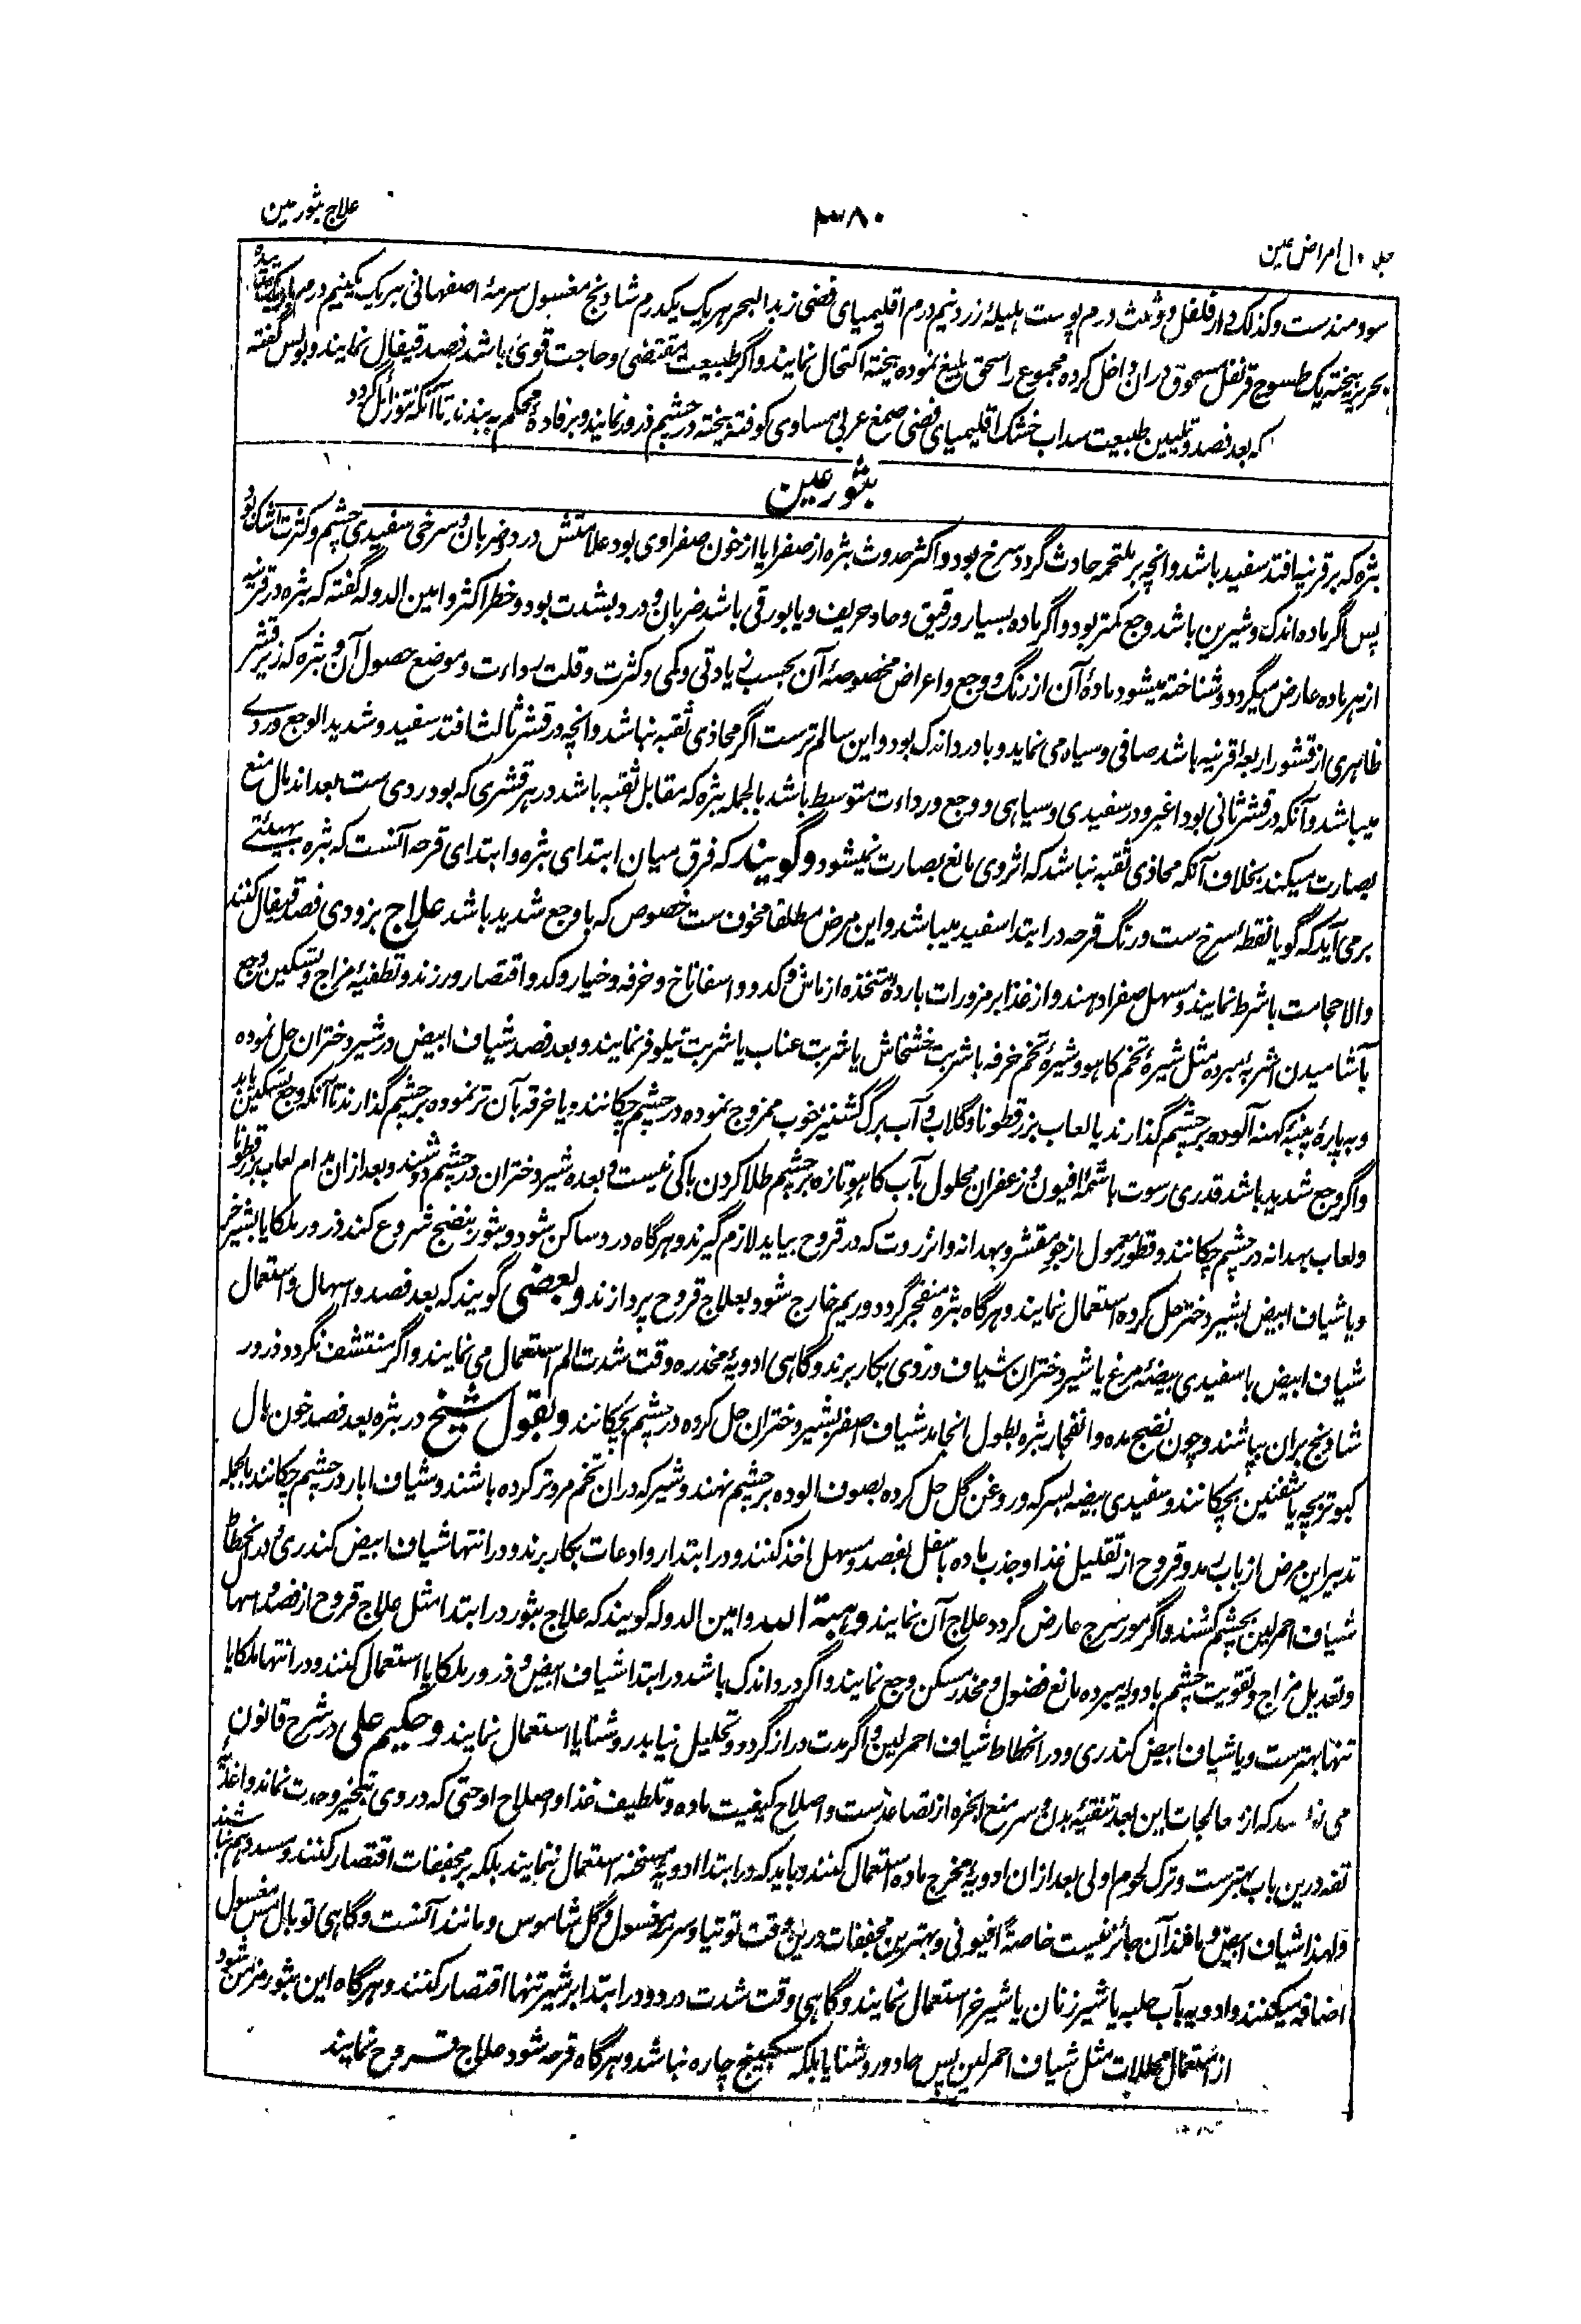 علاج بثور عین
۳۸۰
جلد ۱۰ امراض عین
سودمندست وکذلک دارفلفل دو ثلث درم پوست هلیلهٔ زرد نیم درم اقلیمیای فضی زبد البحر هریک یکدرم شادنج مغسول سرمهٔ اصفهانی هریک یکنیم درم
بحریر بیخته یک طسوج قرنفل مسحوق دران داخل کرده مجموع را سحق بلیغ نموده بیخته اکتحال نمایند واگر طبیعت مقتضی وحاجت قوی باشد فصد قیفال نمایند وبولس گفته
که بعد فصد وتلیین طبیعت سداب خشک اقلیمیای فضی صمغ عربی مساوی کوفته بیخته در چشم ذرور نمایند وبر فاده محکم به بندند تا آنکه نتو زائل گردد
بثور عین
بثره که بر قرنیه افتد سفید باشد وانچه بر ملتحمه حادث گردد سرخ بود واکثر حدوث بثره از صفرا یا از خون صفراوی بود علامتش درد وضربان وسرخی سفیدی چشم وکثرت اشک بود
پس اگر ماده اندک وشیرین باشد وجع کمتر بود واگر ماده بسیار ورقیق وحاد حریف ویا بورقی باشد ضربان ودرد بشدت بود وخطر اکثر وامین الدوله گفته که بثره در قرنیه
از هر ماده عارض میگردد وشناخته میشود مادهٔ آن از رنگ ووجع واعراض مخصوصهٔ آن بحسب زیادتی وکمی وکثرت وقلت رداءت وموضع حصول آن وبثره که زیر قشر
ظاهری از قشور اربعهٔ قرنیه باشد صافی وسیاه می نماید وبا درد اندک بود واین سالم ترست اگر محاذی ثقبه نباشد وانچه در قشر ثالث افتد سفید وشدید الوجع وردی
میباشد وآنکه در قشر ثانی بود اغبر ودر سفیدی وسیاهی ووجع ورداءت متوسط باشد بالجمله بثره که مقابل ثقبه باشد در هر قشری که بود ردی ست بعد اندمال منع
بصارت میکند بخلاف آنکه محاذی ثقبه نباشد که اثر وی مانع بصارت نمیشود وگویند که فرق میان ابتدای بثره وابتدای قرحه آنست که بثره بهیئتے
برمی آید که گویا نقطهٔ سرخ ست ورنگ قرحه در ابتدا سفید میباشد واین مرض مطلقا مخوف ست خصوص که با وجع شدید باشد علاج بزودی فصد قیفال کنند
والا حجامت با شرط نمایند ومسهل صفرا دهند واز غذا بر مزورات بارده متخذه از ماش وکدو واسفاناخ وخرفه وخیار وکدو اقتصار ورزند وتطفیهٔ مزاج وتسکین وجع
بآشامیدن اشربه مبرده مثل شیرهٔ تخم کاهو وشیرهٔ تخم خرفه با شربت خشخاش یا شربت عناب یا شربت نیلوفر نمایند وبعد فصد شیاف ابیض در شیر دختران حل نموده
وبه پارهٔ پنبهٔ کهنه آلوده بر چشم گذارند یا لعاب بزرقطونا وگلاب وآب برگ گشنیز خوب ممزوج نموده در چشم چکانند ویا خرقه بآن تر نموده بر چشم گذارند تا آنکه وجع تسکین یابد
واگر وجع شدید باشد قدری رسوت با شمهٔ افیون وزعفران محلول بآب کاهو تازه بر چشم طلا کردن باکی نیست وبعده شیر دختران در چشم دوشند وبعد ازان مدام لعاب بزرقطونا
ولعاب بهدانه در چشم چکانند وقطور معمول از جو مقشر وبهدانه وانزروت که در قروح بیاید لازم گیرند وهرگاه درد ساکن شود وبثور بنضج شروع کند ذرور ملکایا بشیر خر
ویا شیاف ابیض بشیر دختر حل کرده استعمال نمایند وهرگاه بثره منفجر گردد وریم خارج شود بعلاج قروح پردازند وبعضی گویند که بعد فصد واسهال واستعمال
شیاف ابیض با سفیدی بیضهٔ مرغ یا شیر دختران شیاف وردی بکار برند وگاهی ادویهٔ مخدره وقت شدت الم استعمال می نمایند واگر منتشف نگردد ذرور
شادنج بران بپاشند وچون نضج مده وانفجار بثره بطول انجامد شیاف اصفر بشیر دختران حل کرده در چشم بچکانند وبقول شیخ در بثره بعد فصد خون بال
کبوتر بچه یا شفنین بچکانند وسفیدی بیضه بسرکه وروغن گل حل کرده بصوف الوده بر چشم نهند وشیر که دران تخم مرو تر کرده باشند وشیاف ابار در چشم چکانند بالجمله
تدبیر این مرض از باب رمد وقروح از تقلیل غذا وجذب ماده باسفل بفصد ومسهل اخذ کنند ودر ابتدا رادعات بکار برند ودر انتها شیاف ابیض کندری ودر انحطاط
شیاف احمر لین بچشم کشند واگر مورسرج عارض گردد علاج آن نمایند وهبة الله وامین الدوله گویند که علاج بثور در ابتدا مثل علاج قروح از فصد واسهال
وتعدیل مزاج وتقویت چشم بادویه مبرده مانع فضول ومخدر مسکن وجع نمایند واگر درد اندک باشد در ابتدا شیاف ابیض وذرور ملکایا استعمال کنند ودر انتها ملکایا
تنها بهترست ویا شیاف ابیض کندری ودر انحطاط شیاف احمر لین واگر مدت دراز گردد وتحلیل نیابد روشنایا استعمال نمایند وحکیم علی در شرح قانون
می نویسد که از معالجات این بعد تنقیهٔ بدن وسر منع ابخره از تصاعدست واصلاح کیفیت ماده وتلطیف غذا واصلاح او حتی که در وی تبخیر وحدت نماند واغذیهٔ
تفه درین باب بهترست وترک لحوم اولی بعد ازان ادویهٔ مخرج ماده استعمال کنند وباید که در ابتدا ادویه مسخنه استعمال ننمایند بلکه بر مجففات اقتصار کنند ومسدد هم نباشند
ولهذا شیاف ابیض ومانند آن جائز نیست خاصةً افیونی وبهترین مجففات درین وقت توتیا وسرمه مغسول وگل شاموس ومانند آنست وگاهی توبال مس مغسول
اضافه میکنند وادویه بآب حلبه یا شیر زنان یا شیر خر استعمال نمایند وگاهی وقت شدت درد ودر ابتدا بر شیر تنها اقتصار کنند وهرگاه این بثور مزمن شود
از استعمال محللات مثل شیاف احمر لین پس حاد وروشنایا بلکه سکبینج چاره نباشد وهرگاه قرحه شود علاج قروح نمایند